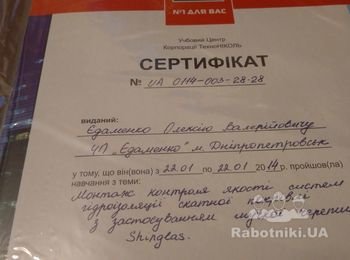 №1 ДЛЯ ВАС
Учбовий Центр
Корпорації ТехноНІКОЛЬ
СЕРТИФІКАТ
№ UA 0114-003-28-28
виданий:
Єдаменко Олексію Валерійовичу
ЧП „Єдаменко" м. Дніпропетровськ
у тому, що він(вона) з 22.01 по 22.01 2014р. пройшов(ла)
навчання з теми:
Монтаж контроля якості систем
гідроізоляції скатної покрівлі
з застосуванням мʼякої черепи
Shinglas.
Rabotniki.UA